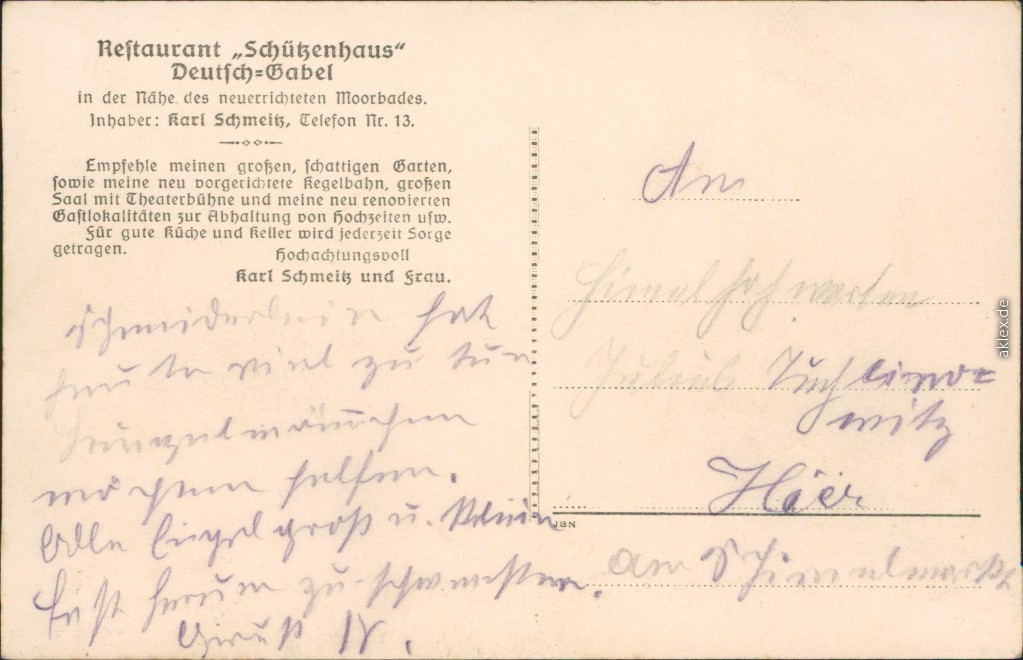 Restaurant „Schützenhaus“
Deutsch=Gabel
in der Nähe des neuerrichteten Moorbades.
Inhaber: Karl Schmeitz, Telefon Nr. 13.
Empfehle meinen großen, schattigen Garten,
sowie meine neu vorgerichtete Kegelbahn, großen
Saal mit Theaterbühne und meine neu renovierten
Gastlokalitäten zur Abhaltung von Hochzeiten usw.
Für gute Küche und Keller wird jederzeit Sorge
getragen.
Hochachtungsvoll
Karl Schmeitz und Frau.
Schneiderlein hat
heute viel zu tun
möchten helfen.
Alle groß u. klein
herum zu
Gruß
An
Julius
witz
Hier
Am
JBN
aklex.de